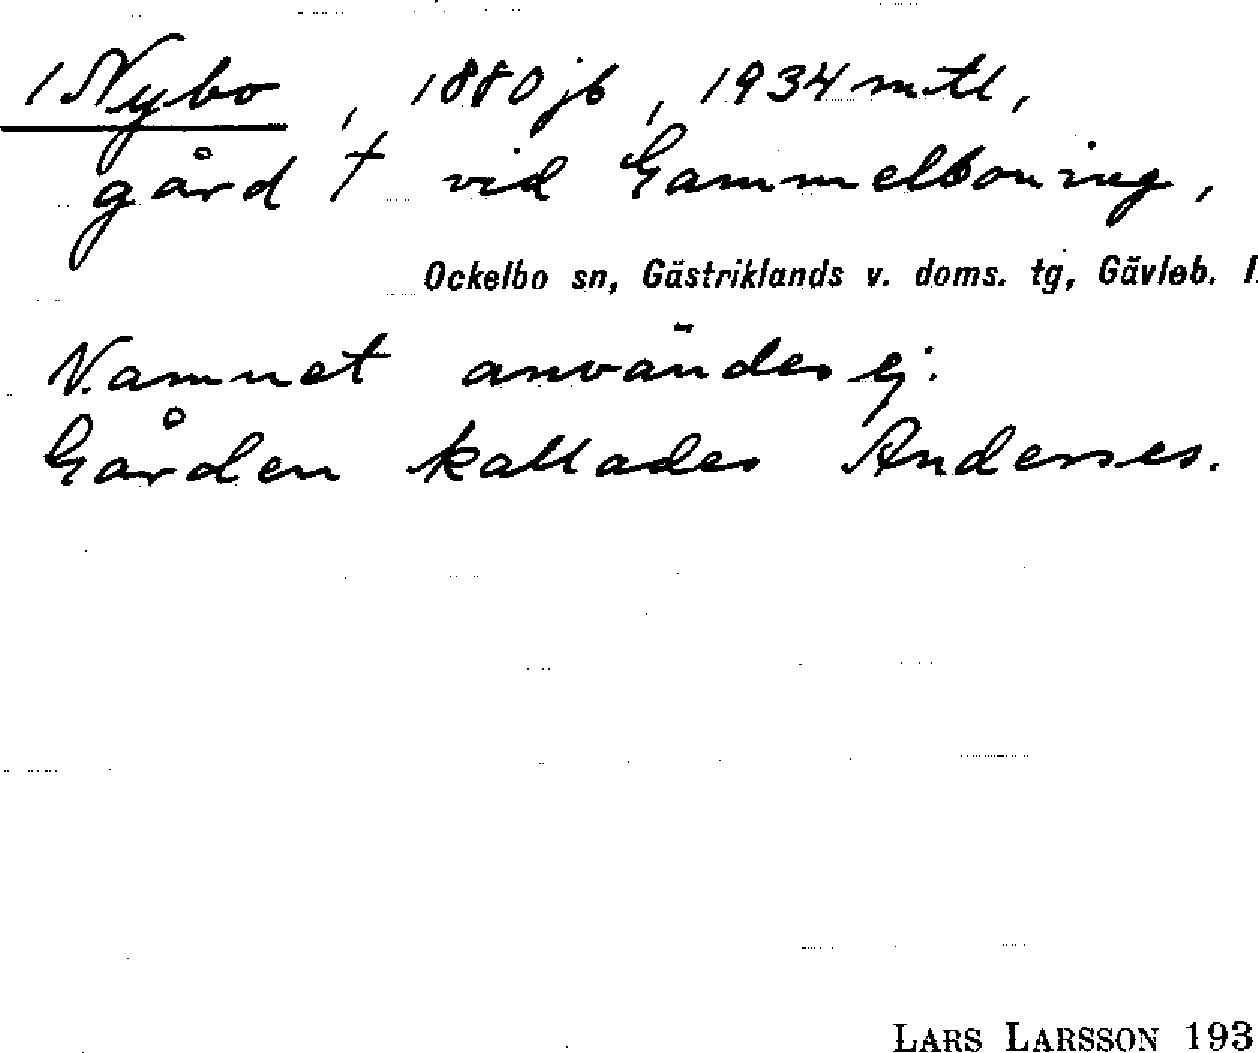 1 Nybo, 1880 jb, 1934 mtl,
gård † vid Gammelboning,
Ockelbo sn, Gästriklands v. doms. tg, Gävleb. l.
Namnet användes ej.
Gården kallades Anderses.
LARS LARSSON 193